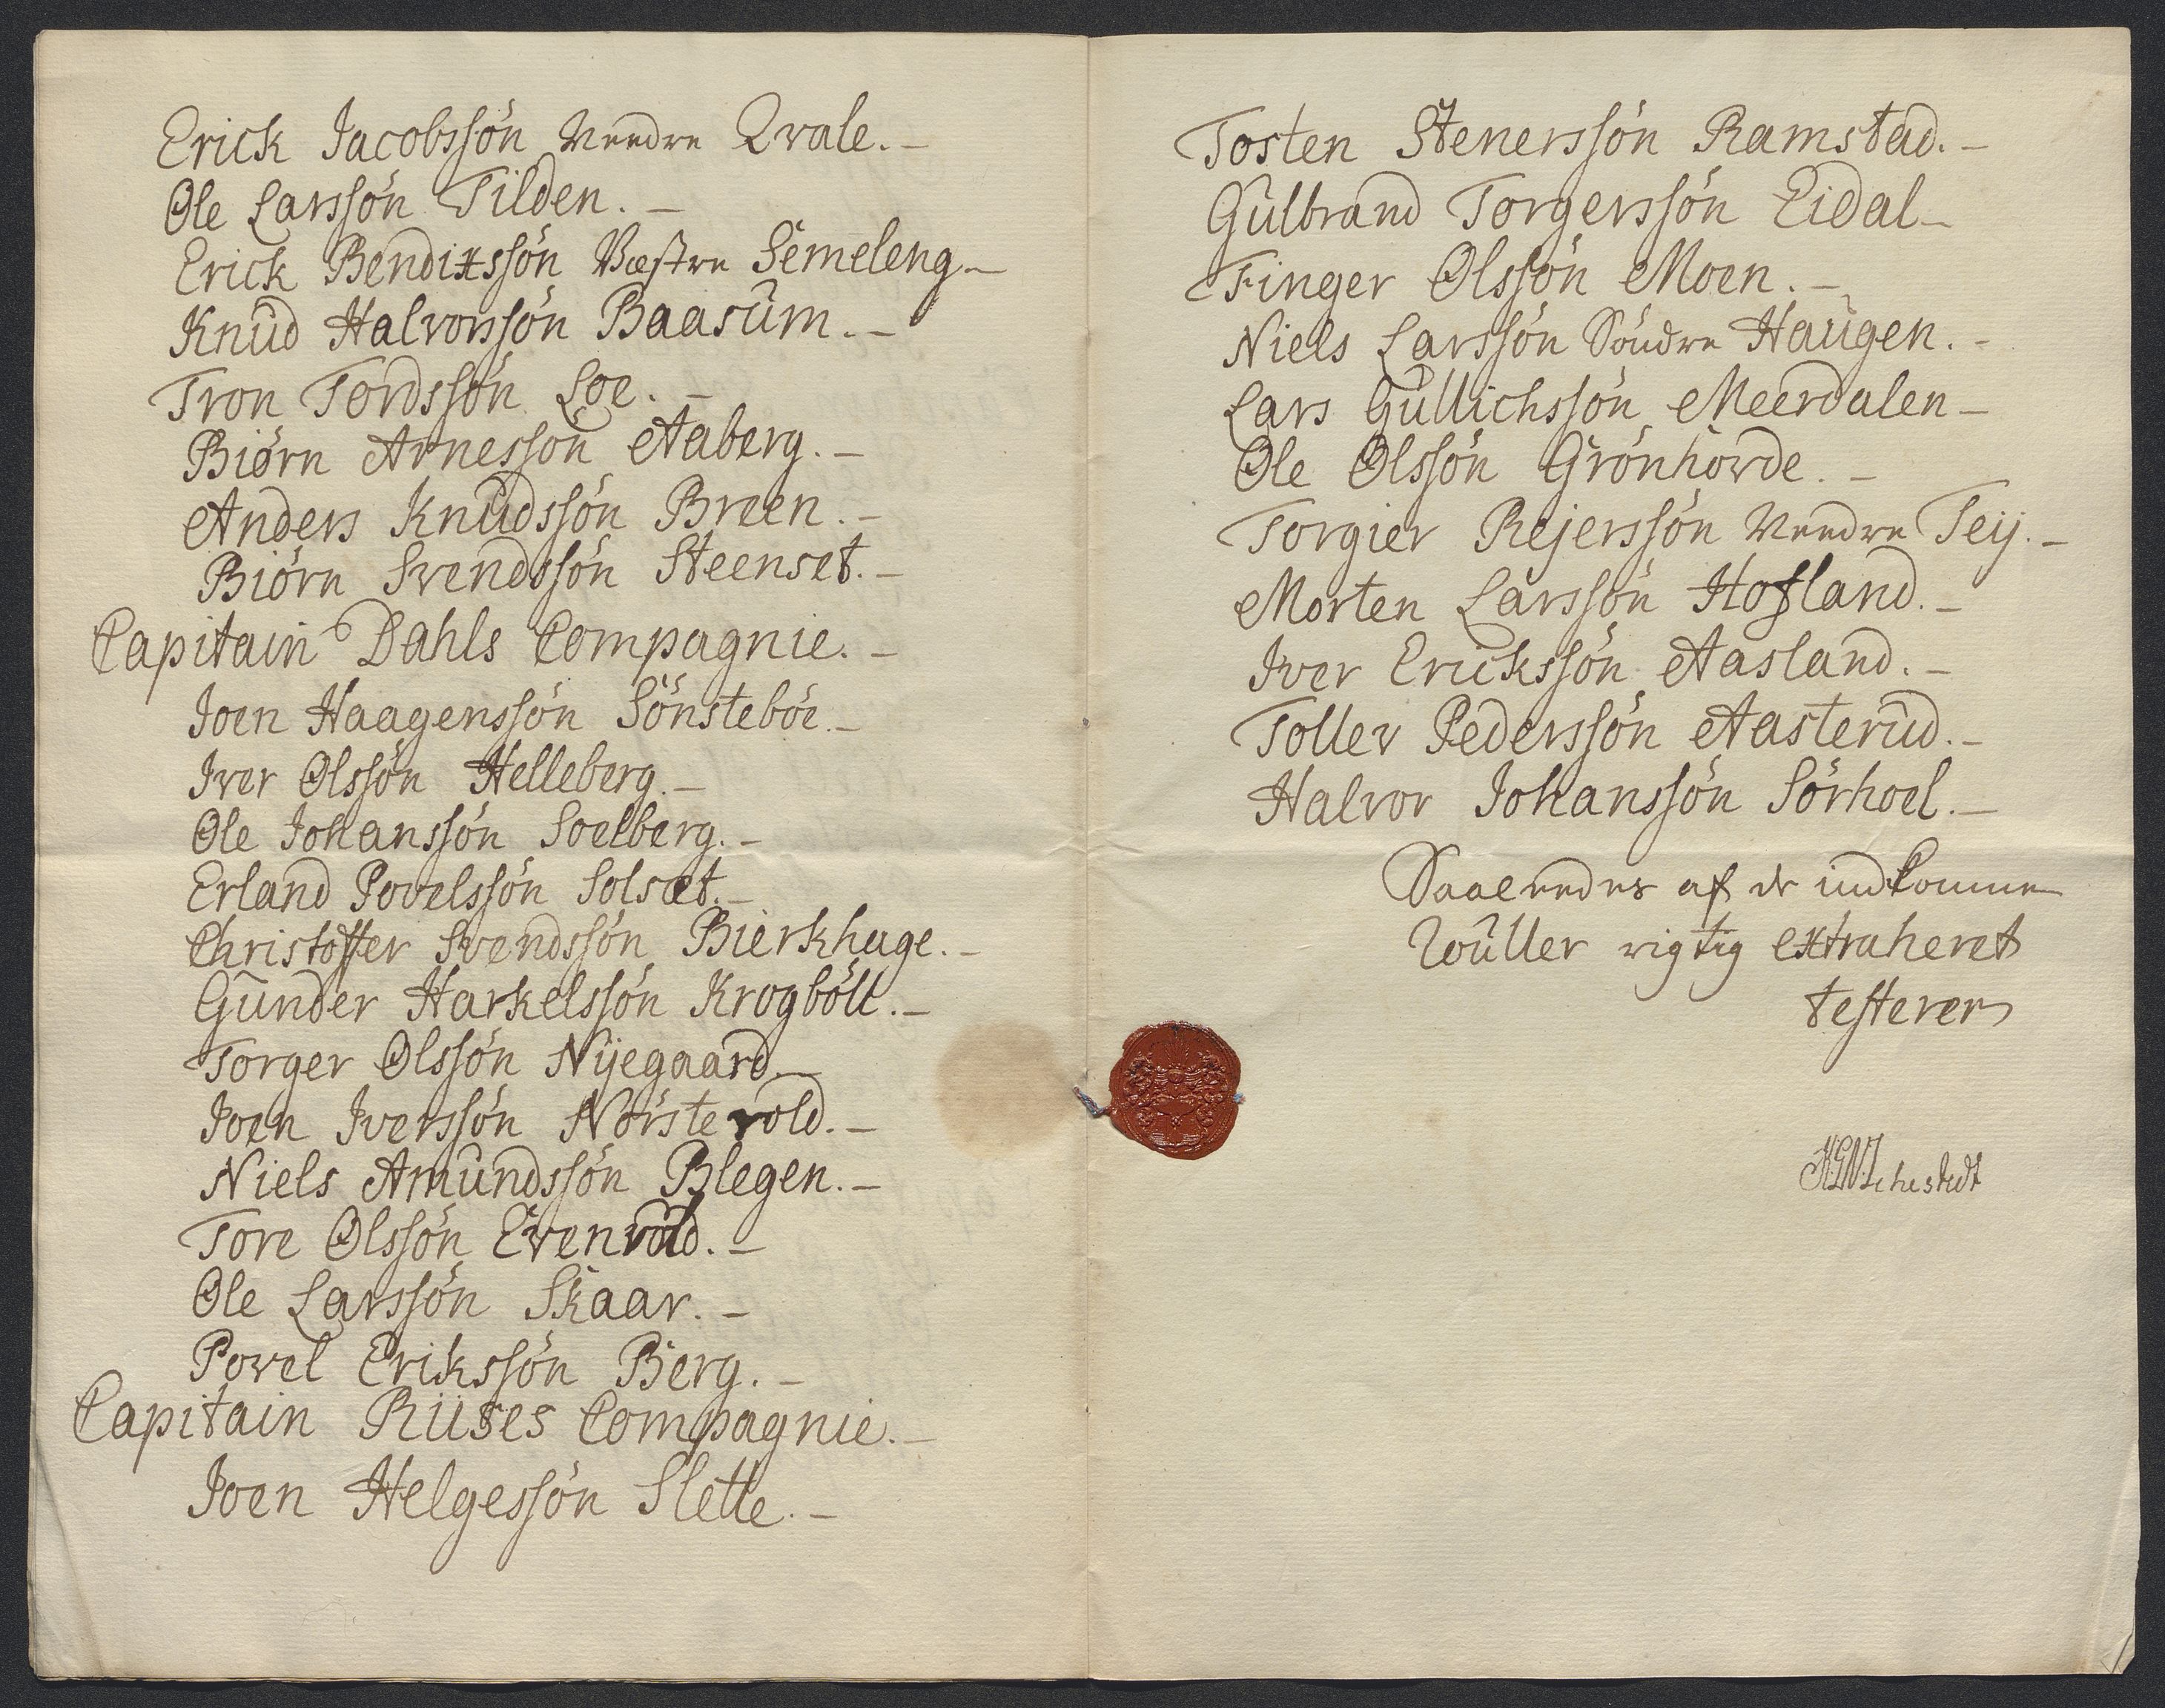 Erick Jacobssön Needre Qvale. –
Ole Larssön Tilden. –
Erick Bendixssön Væstre Semeleng –
Knud Halvorssön Baasum. –
Tron Tordssön Loe. –
Biörn Arnessön Aaberg. –
Anders Knudssön Breen. –
Biörn Svendssön Steenset. –
Capitain Dahls Compagnie. –
Joen Haagenssön Sönsteböe. –
Iver Olssön Helleberg. –
Ole Johanssön Soelberg. –
Erland Povelssön Solset. –
Christoffer Svendssön Bierkhage. –
Gunder Harkelssön Krogböll. –
Torger Olssön Nÿegaard. –
Joen Iverssön Nörstevold. –
Niels Amundssön Blegen. –
Tore Olssön Evenvold. –
Ole Larssön Skaar. –
Povel Erikssön Berg. –
Capitain Riises Compagnie. –
Joen Helgessön Slette. –
Tosten Stenerssön Ramstad. –
Gulbrand Torgerssön Eidal –
Finger Olssön Moen. –
Niels Larssön Söndre Haugen. –
Lars Gullichssön Meerdalen –
Ole Olssön Grönhovde. –
Torgier Rejerssön Needre Teij. –
Morten Larssön Hofland. –
Iver Erickssön Aasland. –
Tollev Pederssön Aasterud. –
Halvor Johanssön Sörhoel. –
Saaleedes af de indkomne
Rouller rigtig extraheret
testerer